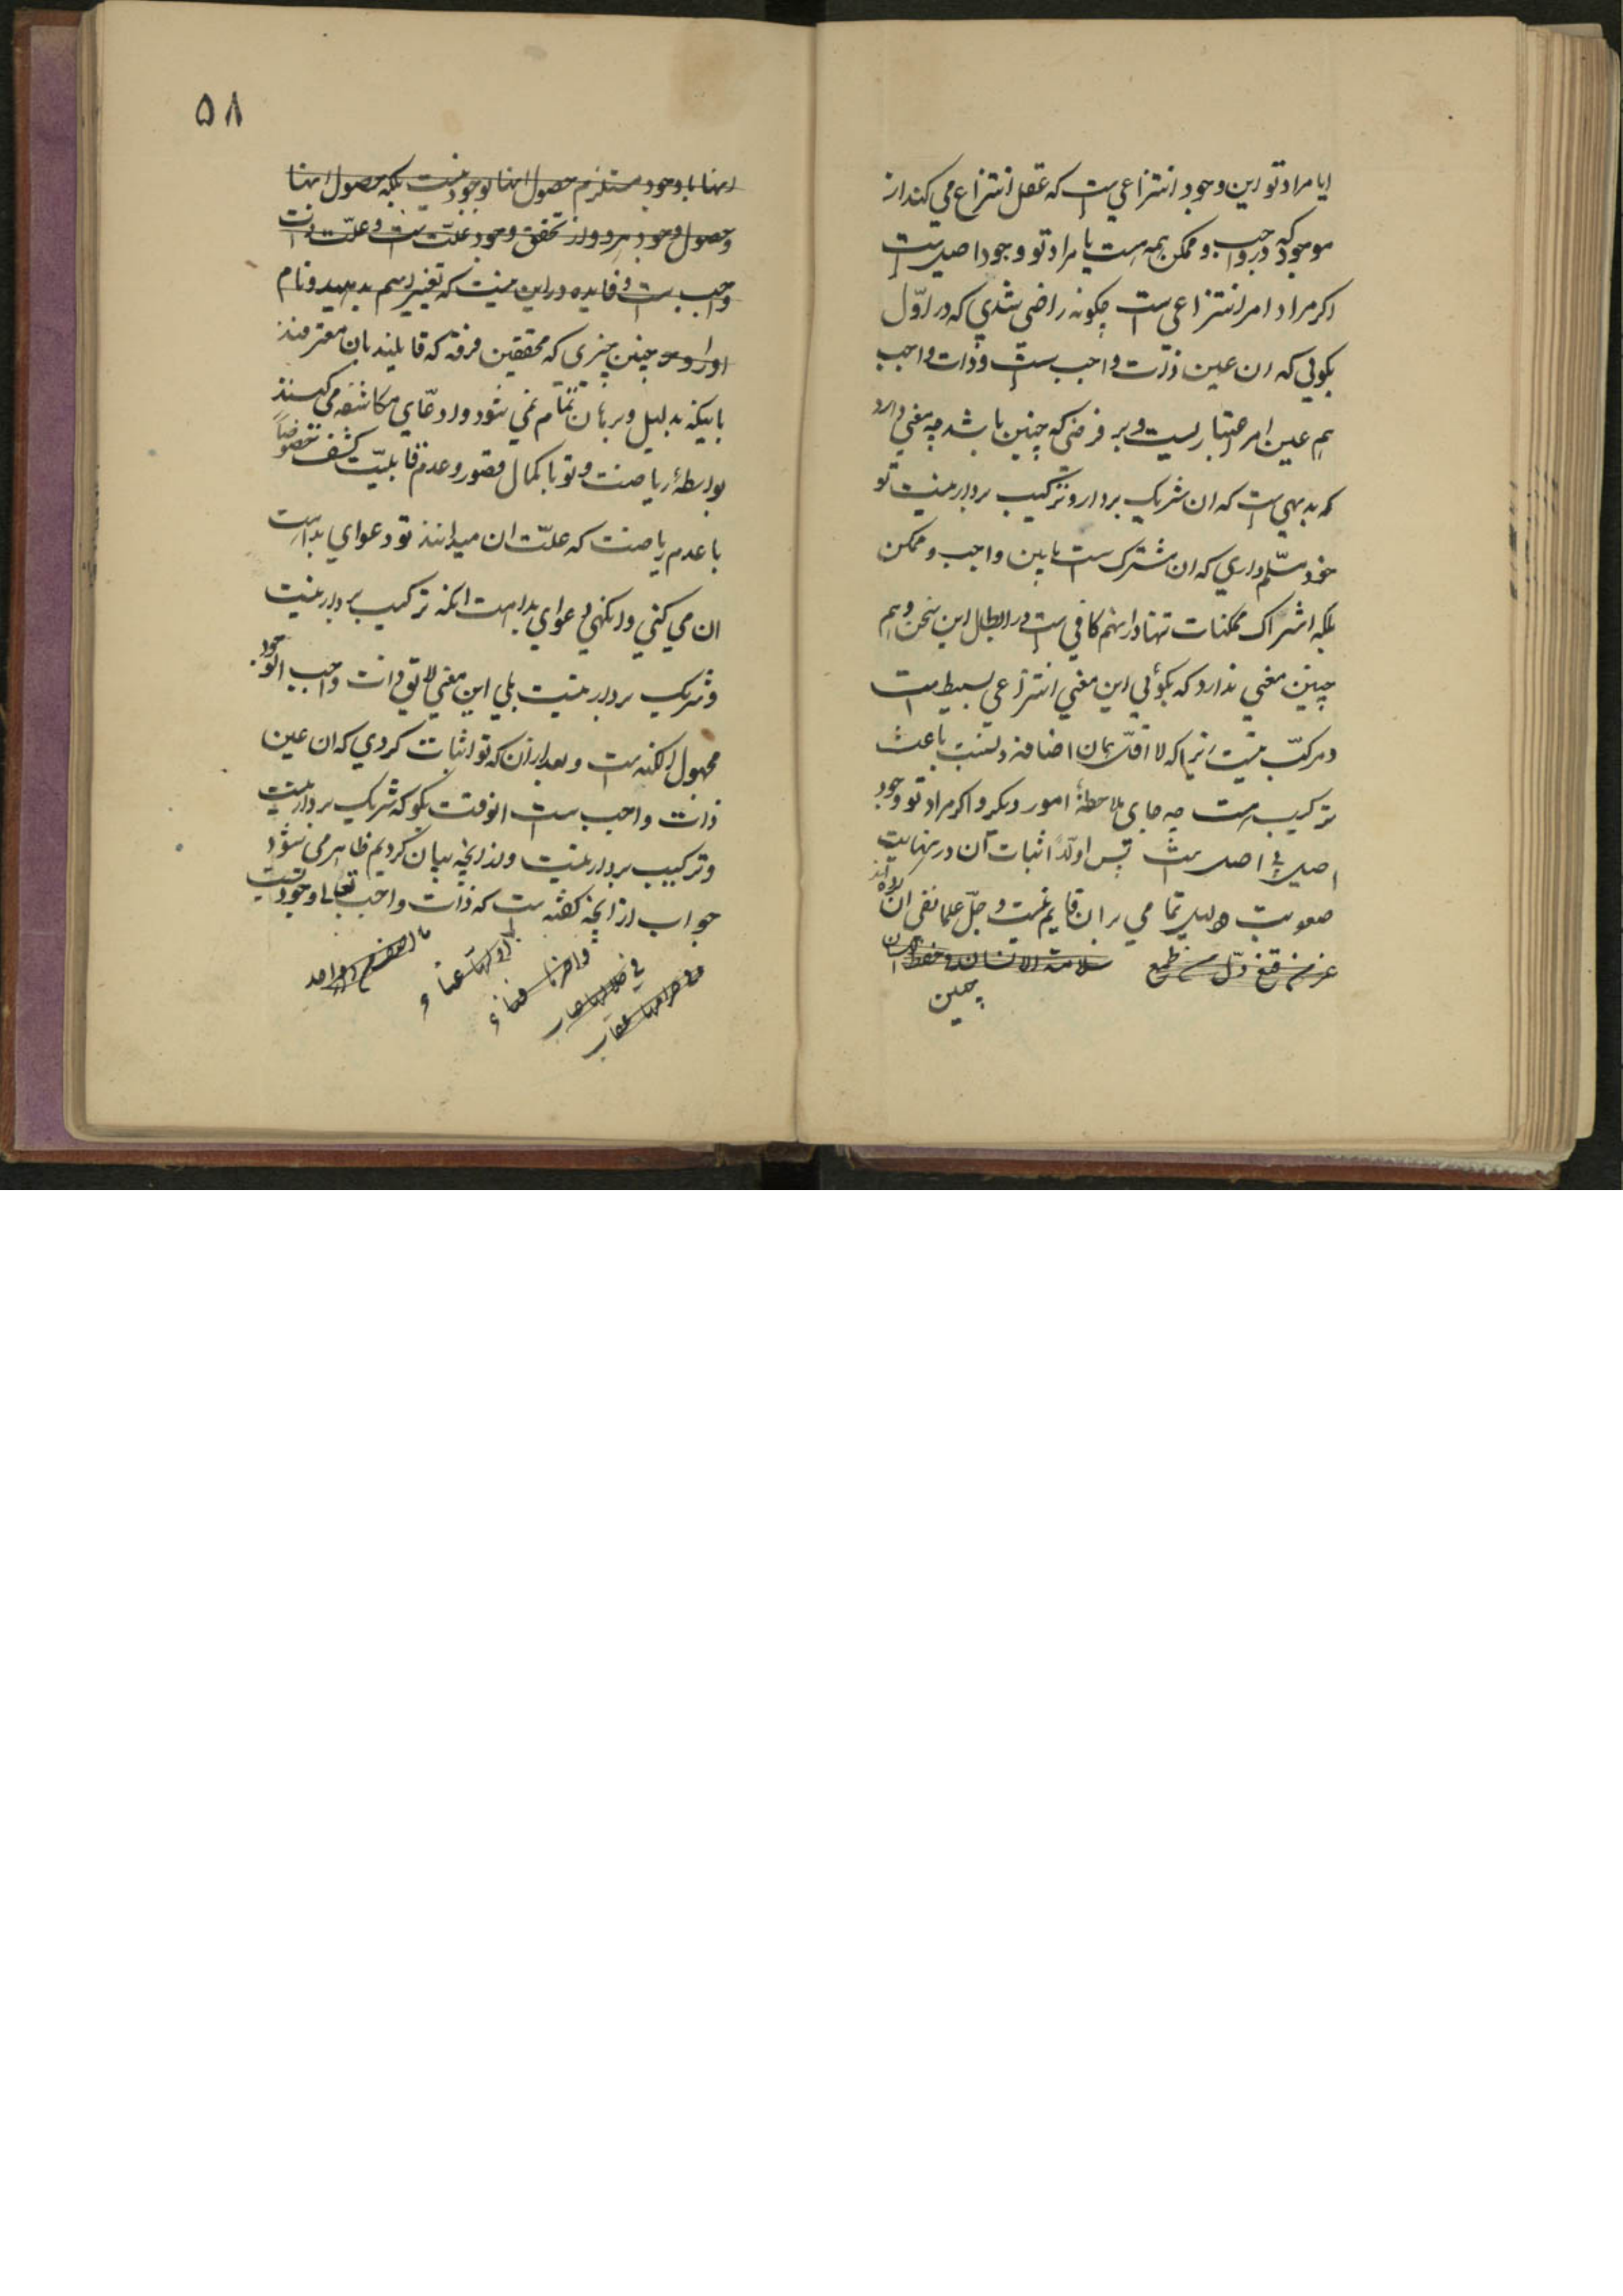 ایا مراد تو این وجود انتزاعی است که عقل انتزاع می کند از
موجود که در واجب و ممکن همه هست یا مراد تو وجود اصیل است
اکر مراد امر انتزاعی است چکونه راضی شدی که در اوّل
بکوئی که ان عین ذات واجب است و ذات واجب
هم عین امر اعتباریست و بر فرضی که چنین باشد چه معنی دارد
که بدیهی است که ان شریک بردار و ترکیب بردار نیست تو
خود مسلّم داری که ان مشترک است مابین واجب و ممکن
بلکه اشتراک ممکنات تنها در انهم کافی است در ابطال این سخن و هم
چنین معنی ندارد که بکوئی این معنی انتزاعی بسیط است
و مرکّب نیست زیرا که لا اقلّ همان اضافه و نسبت باعث
ترکیب است چه جای ملاحظهٔ امور دیکر و اکر مراد تو وجود
اصیل فی اصل است پس اولًا اثبات آن در نهایت
صعوبت و دلیل تمامی بر ان قایم نیست و جلّ علما نفی ان کرده اند
عز من قنع ذلّ من طمع سلامة الانسان فی حفظ اللسان
چنین
۵۸
اینها با وجود مستلزم حصول اینها بوجود نیست بلکه حصول اینها
و حصول وجود هر دو از تحقق وجود علّت است و علّت ذات
واجب است و فایده در این نیست که تغییر اسم بدهید و نام
چنین چیزی که محققین فرقه که قایلند بان معترفند
باینکه بدلیل و برهان تمام نمی شود و ادعّای مکاشفه می کنند
بواسطهٔ ریاضت و تو با کمال قصور و عدم قابلیّت کشف خصوصاً
با عدم ریاضت که علّت ان میدانند تو دعوای بداهت
ان می کنی و انکهی دعوای بداهت انکه ترکیب بردار نیست
و شریک بردار نیست بلی این معنی لایق ذات واجب الوجود
مجهول الکنه است و بعد از ان که تو اثبات کردی که ان عین
ذات واجب است انوقت بکو که شریک بردار نیست
و ترکیب بردار نیست و از انچه بیان کردیم ظاهر می شود
جواب از انچه کفته است که ذات واجب تعالی وجودیست
ما اصف من دار
اولها عناء
و اخرها فناء
فی حلالها حساب
و فی حرامها عقاب